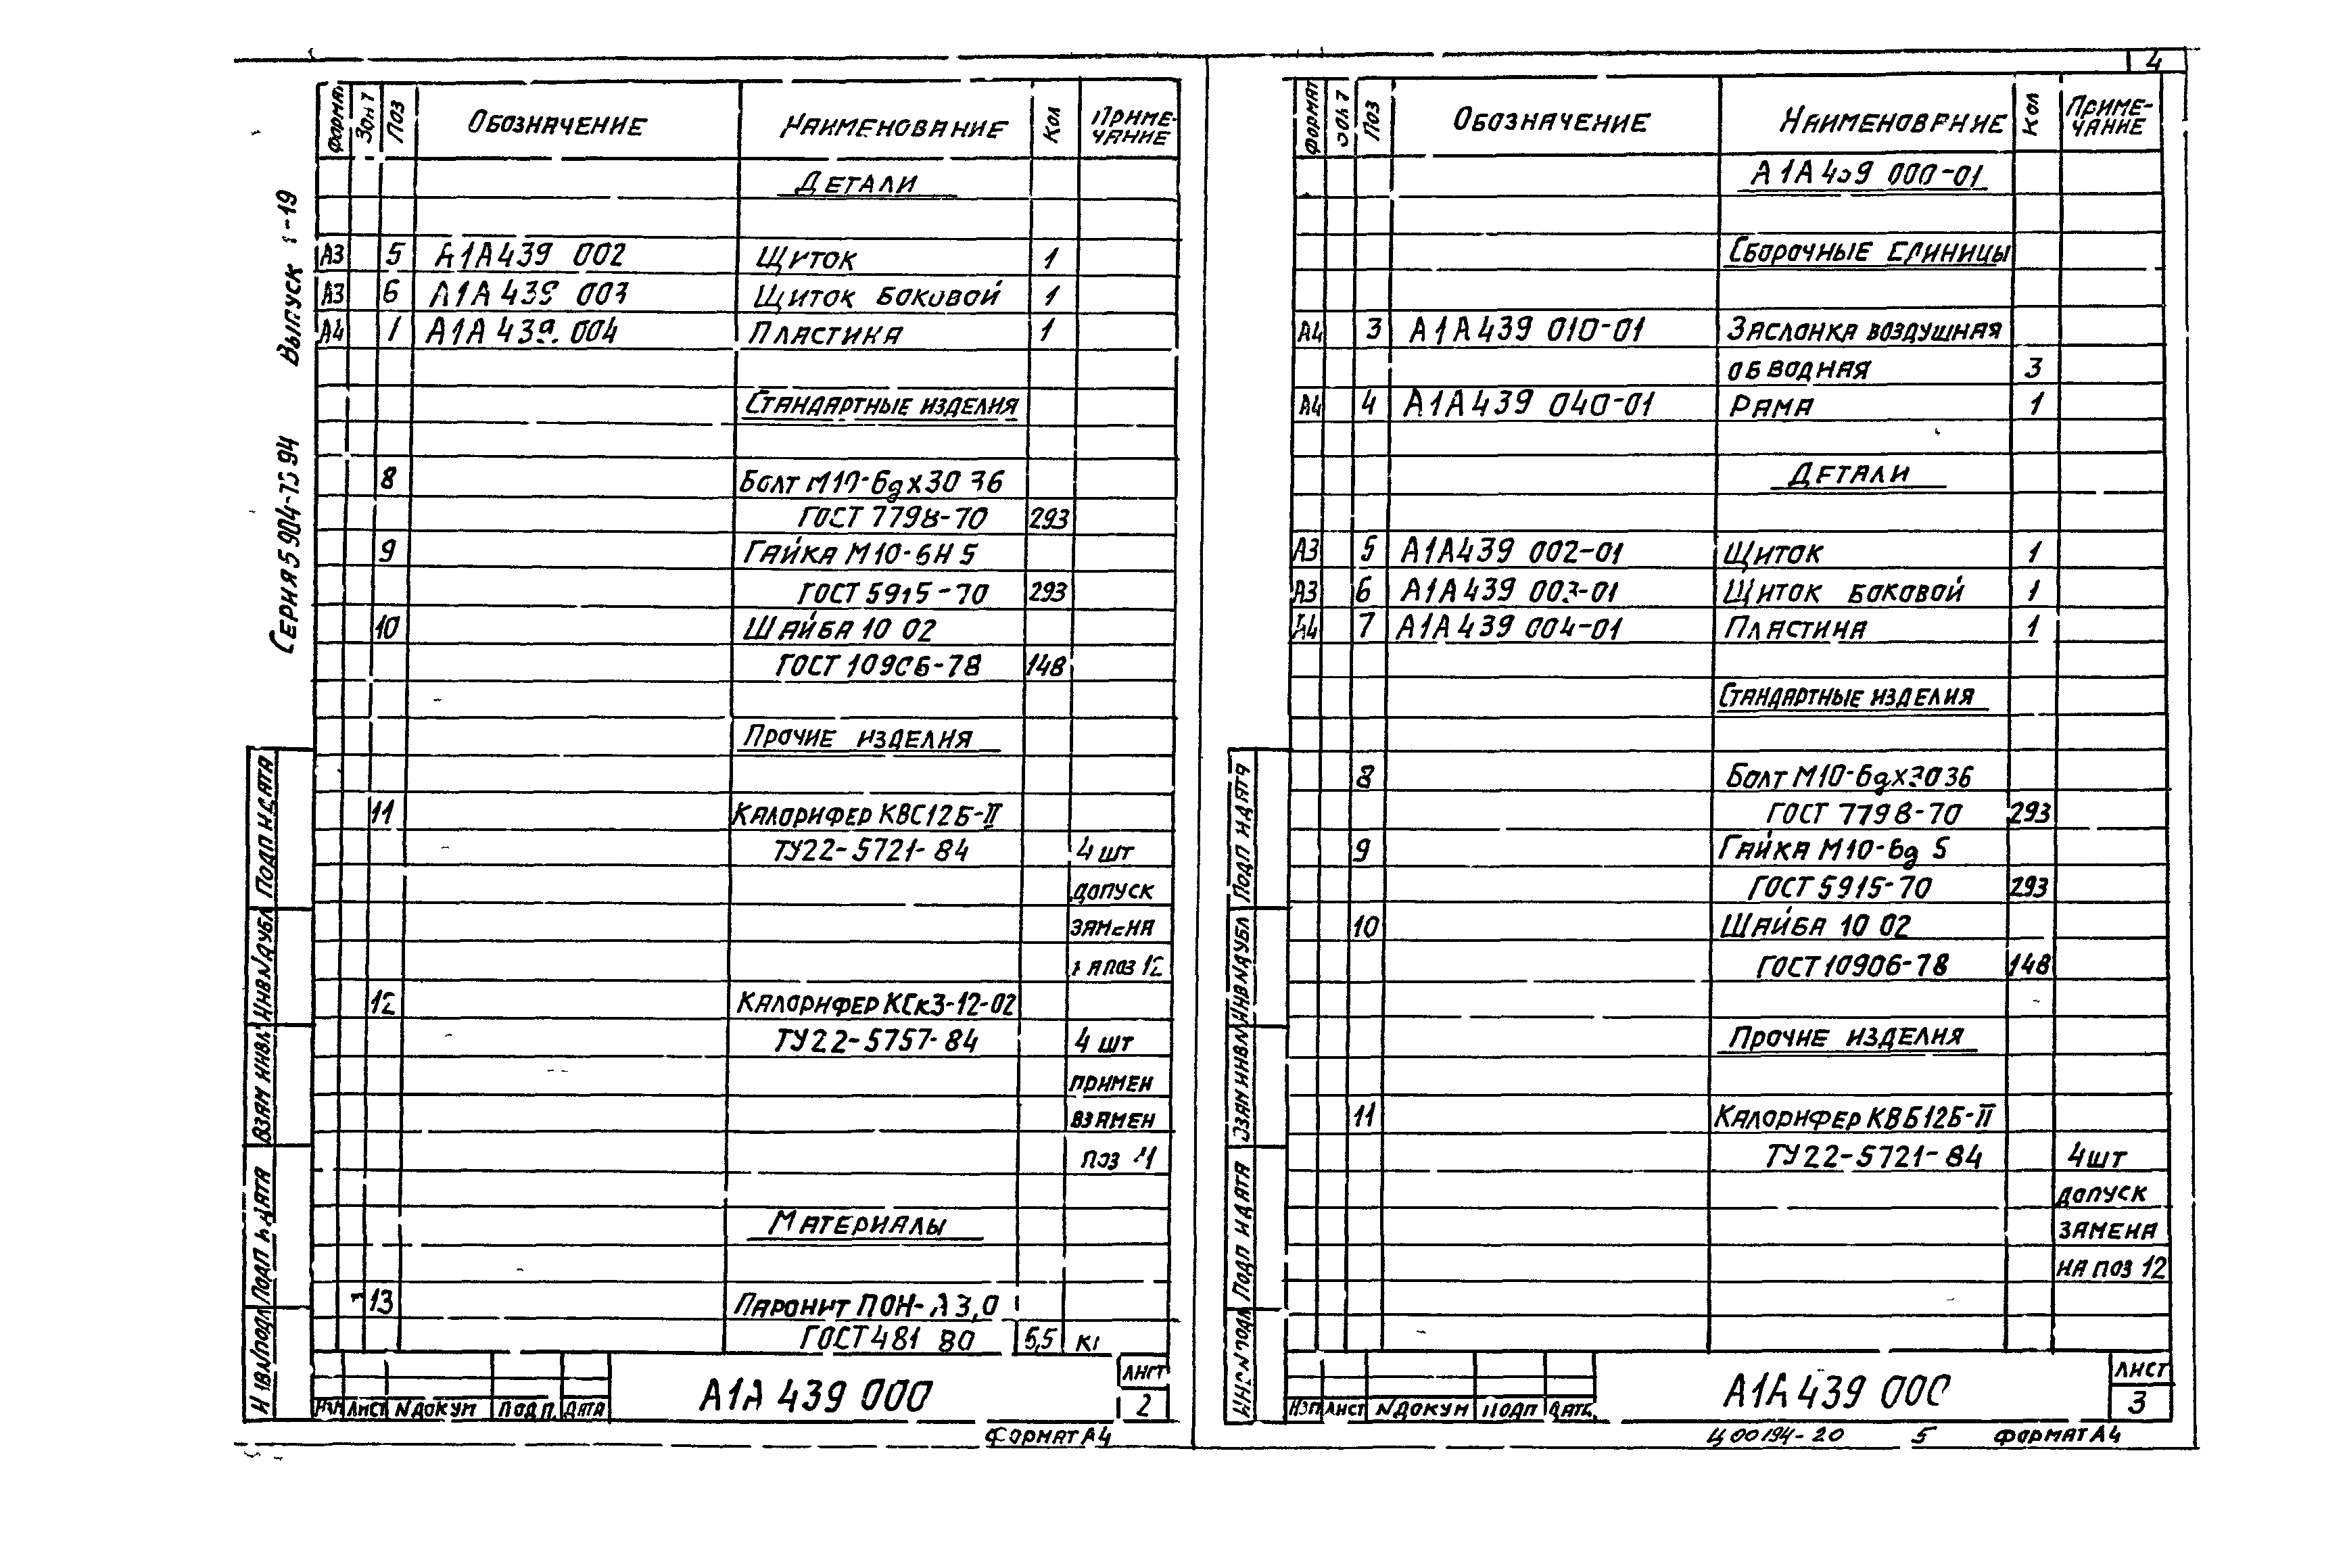 4
Формат Зон Поз Обозначение Наименование Кол Примечание
Детали
А3 5 А1А439 002 Щиток 1
А3 6 А1А439 003 Щиток боковой 1
А4 А1А439.004 Пластика 1
Стандартные изделия
8 Болт М10-6gх30 36
ГОСТ 7798-70 293
9 Гайка М10-6Н 5
ГОСТ 5915-70 293
10 Шайба 10 02
ГОСТ 10906-78 148
Прочие изделия
11 Калорифер КВС12Б-II
ТУ22-5721-84 4 шт
допуск
замена
поз 12
12 Калорифер КСк3-12-02
ТУ22-5757-84 4 шт
примен
взамен
поз
Материалы
13 Паронит ПОН-А 3,0
ГОСТ 481 80 5,5 кг
Серия 5 904- 94 Выпуск -19
Подп и дата
Инв N дубл
Взам инв N
Подп и дата
Инв N подл
Изм Лист N докум Подп. Дата
А1А 439 000
Лист
2
Формат А4
Формат Поз Обозначение Наименование Кол Примечание
А1А 439 000-01
Сборочные единицы
А4 3 А1А439 010-01 Заслонка воздушная
обводная 3
А4 4 А1А439 040-01 Рама 1
Детали
А3 5 А1А439 002-01 Щиток 1
А3 6 А1А439 003-01 Щиток боковой 1
А4 7 А1А439 004-01 Пластина 1
Стандартные изделия
8 Болт М10-6gх30 36
ГОСТ 7798-70 293
9 Гайка М10-6g 5
ГОСТ 5915-70 293
10 Шайба 10 02
ГОСТ 10906-78 148
Прочие изделия
11 Калорифер КВБ12Б-II
ТУ22-5721-84 4 шт
допуск
замена
на поз 12
Подп и дата
Инв N дубл
Взам инв N
Подп и дата
Инв N подл
Изм Лист N докум Подп Дата
А1А 439 000
Лист
3
Ц 00194-20 5 Формат А4